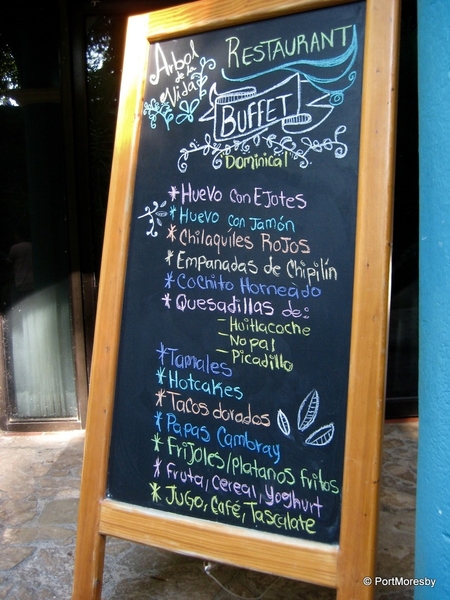 Arbol
de la
Vida
RESTAURANT
BUFFET
"Dominical"
* Huevo con Ejotes
* Huevo con Jamón
* Chilaquiles Rojos
* Empanadas de Chipilín
* Cochito Horneado
* Quesadillas de:
- Huitlacoche
- Nopal
- Picadillo
* Tamales
* Hotcakes
* Tacos dorados
* Papas Cambray
* Frijoles/platanos fritos
* Fruta, Cereal, Yoghurt
* Jugo, Café, Tascalate
© PortMoresby